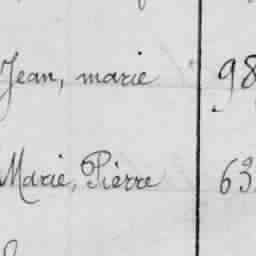 Jean, marie 98
Marie, Pierre 63